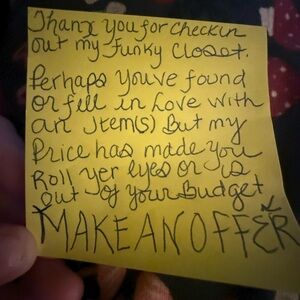 Thanx You for Checkin
out my Funky Closet.
Perhaps You've found
or fell in Love with
an Item(s) But my
Price has made you
Roll Yer Eyes or is
out of your Budget
MAKE AN OFFER